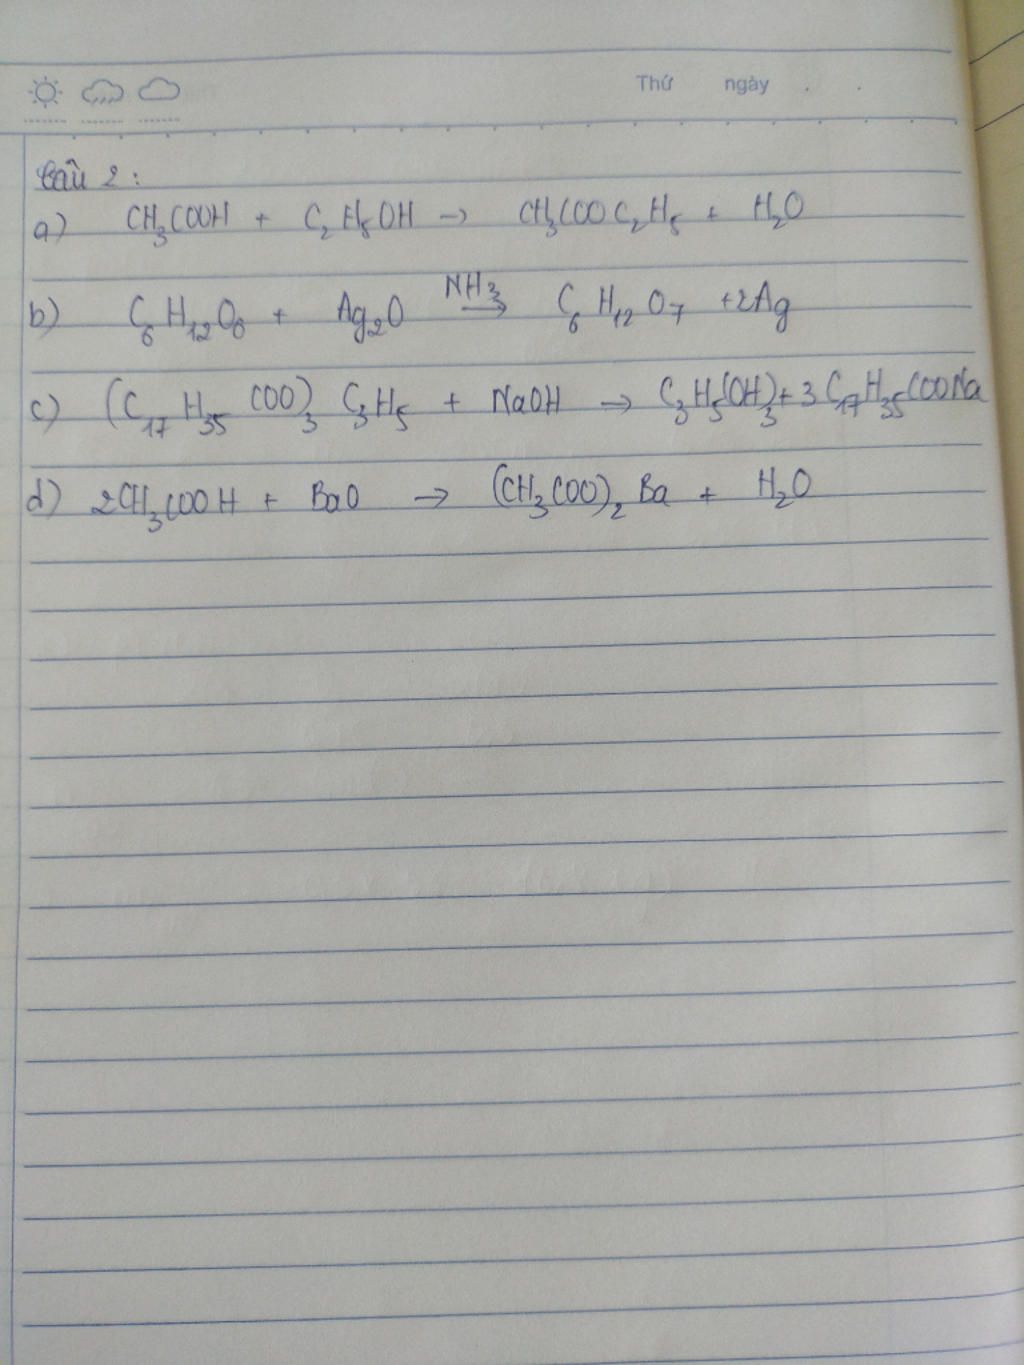 Thứ ngày
Câu 2:
a) CH₃COOH + C₂H₅OH → CH₃COOC₂H₅ + H₂O
b) C₆H₁₂O₆ + Ag₂O NH₃→ C₆H₁₂O₇ + 2Ag
c) (C₁₇H₃₅COO)₃C₃H₅ + NaOH → C₃H₅(OH)₃ + 3C₁₇H₃₅COONa
d) 2CH₃COOH + BaO → (CH₃COO)₂Ba + H₂O